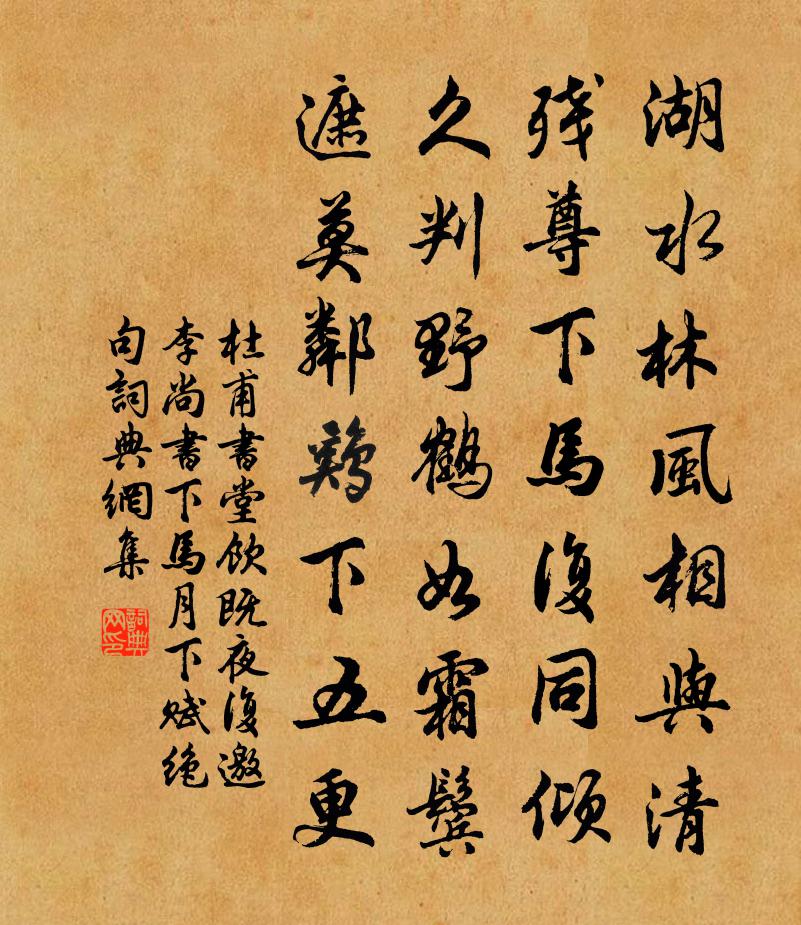 湖水林風相與清
殘尊下馬復同傾
久判野鶴如霜鬢
遮莫鄰鷄下五更
杜甫書堂飲既夜復邀
李尚書下馬月下賦絕
句詞典網集
詞典網印